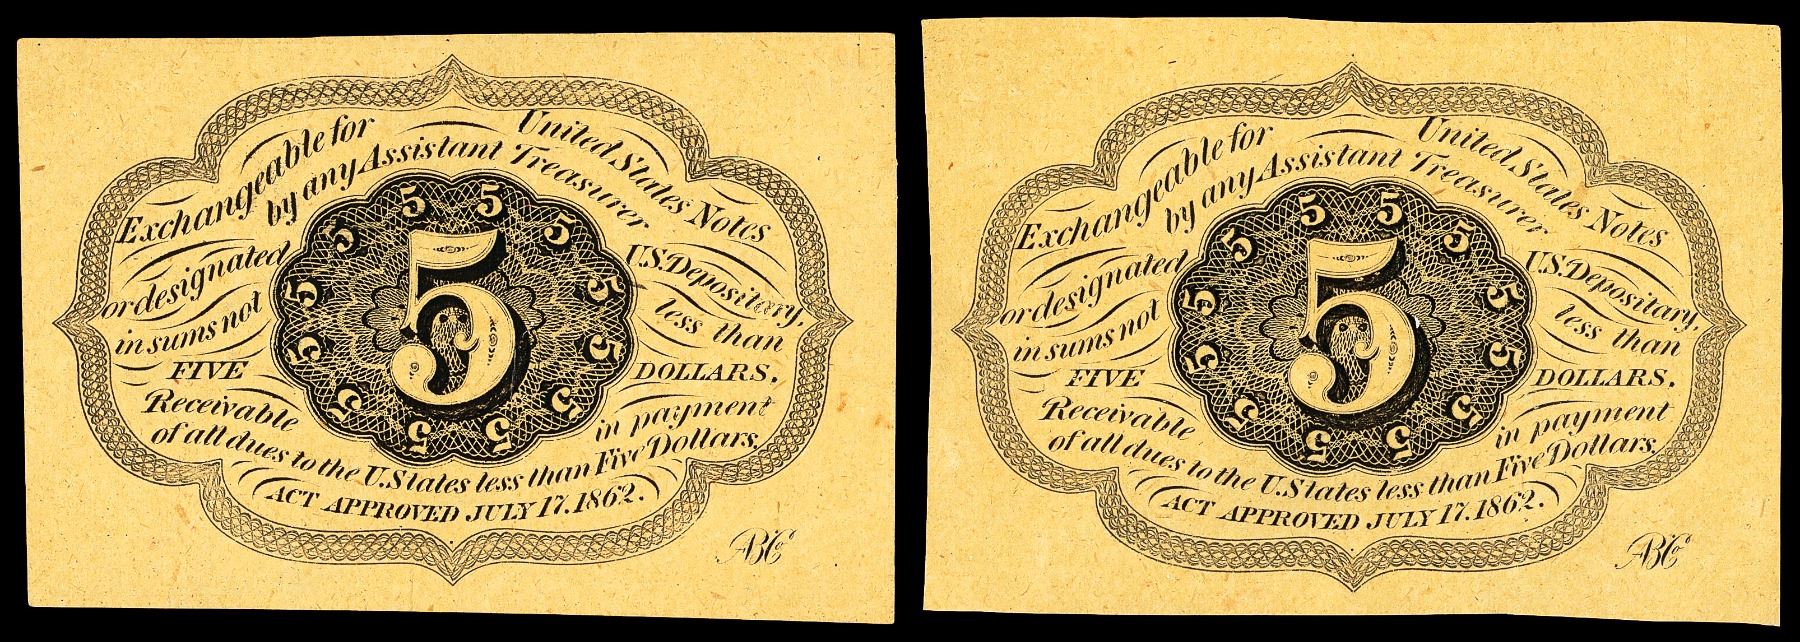 Exchangeable for United States Notes
by any Assistant Treasurer
or designated U.S. Depositary,
in sums not less than
FIVE DOLLARS.
Receivable in payment
of all dues to the U. States less than Five Dollars.
ACT APPROVED JULY 17. 1862.
5
5
5
5
5
5
5
5
5
5
5
5
5
ABCo
Exchangeable for United States Notes
by any Assistant Treasurer
or designated U.S. Depositary,
in sums not less than
FIVE DOLLARS.
Receivable in payment
of all dues to the U. States less than Five Dollars.
ACT APPROVED JULY 17. 1862.
5
5
5
5
5
5
5
5
5
5
5
5
5
ABCo